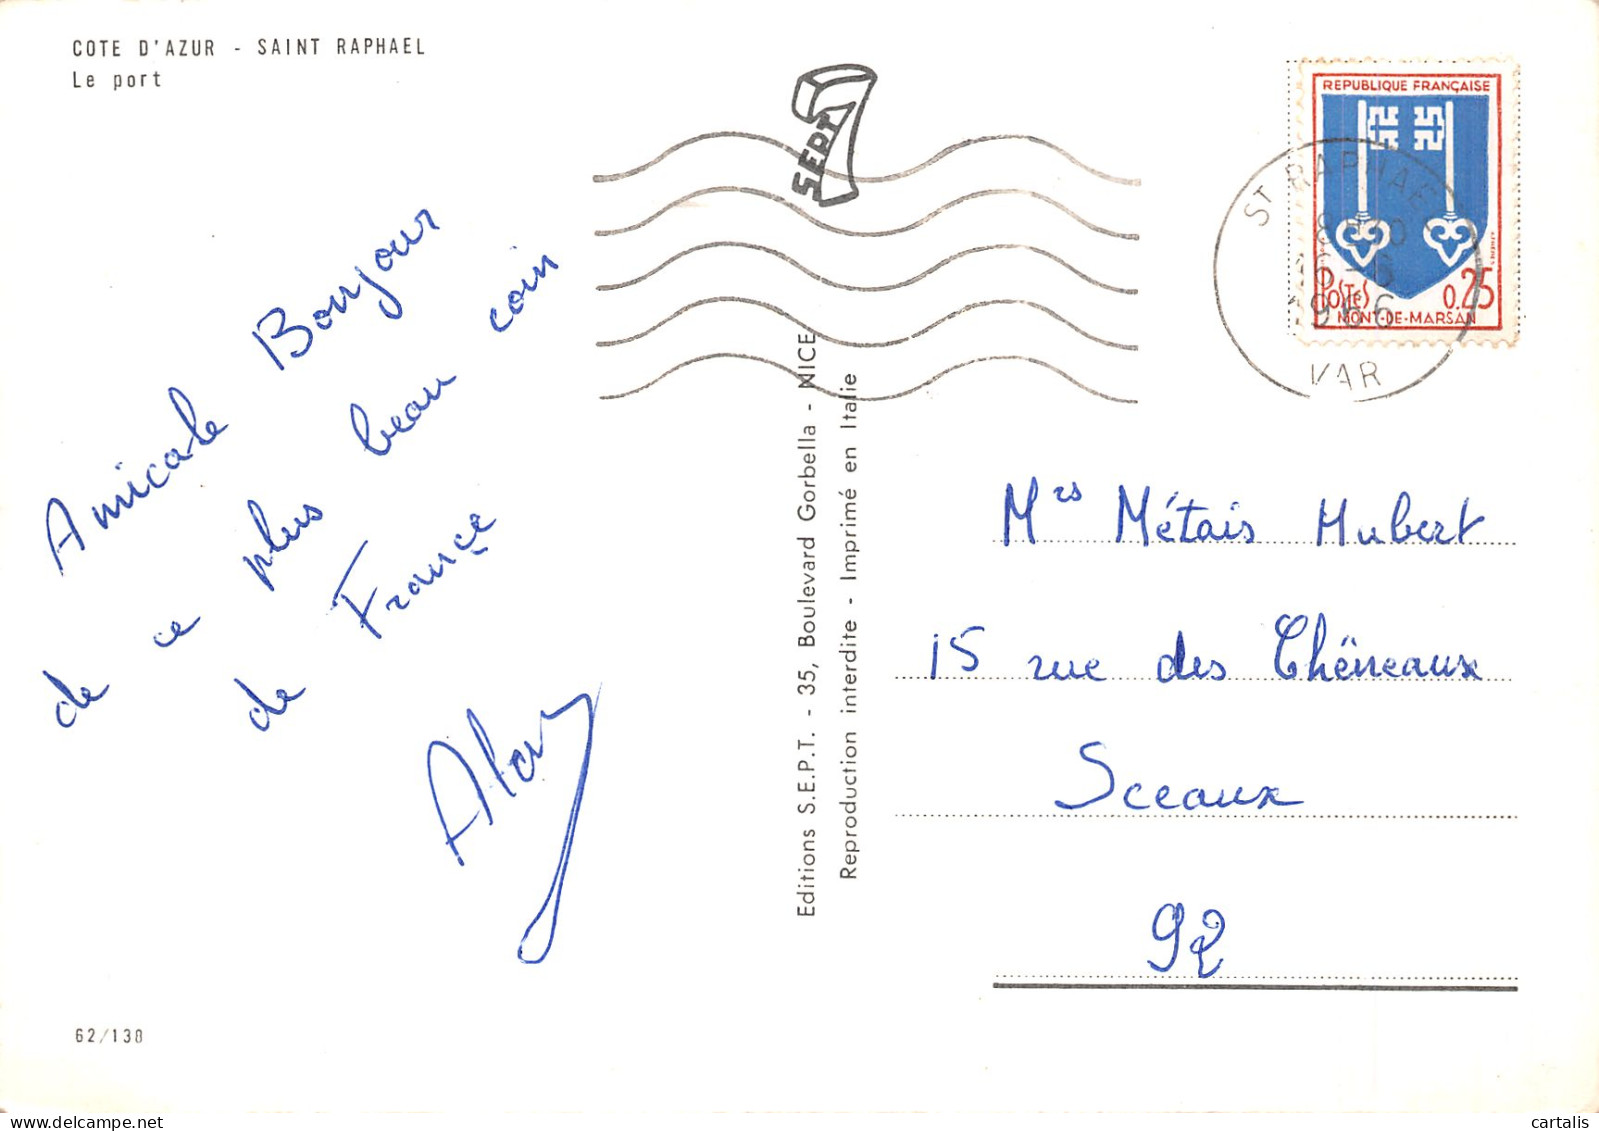 COTE D'AZUR - SAINT RAPHAEL
Le port
SEPT
REPUBLIQUE FRANÇAISE
POSTES 0.25
MONT-DE-MARSAN
ST RAPHAEL
1966
VAR
Amicale Bonjour
de ce plus beau coin
de France
Editions S.E.P.T. - 35, Boulevard Gorbella - NICE
Reproduction interdite - Imprimé en Italie
Mrs Métais Hubert
15 rue des Chêneaux
Sceaux
92
62/138
cartalis